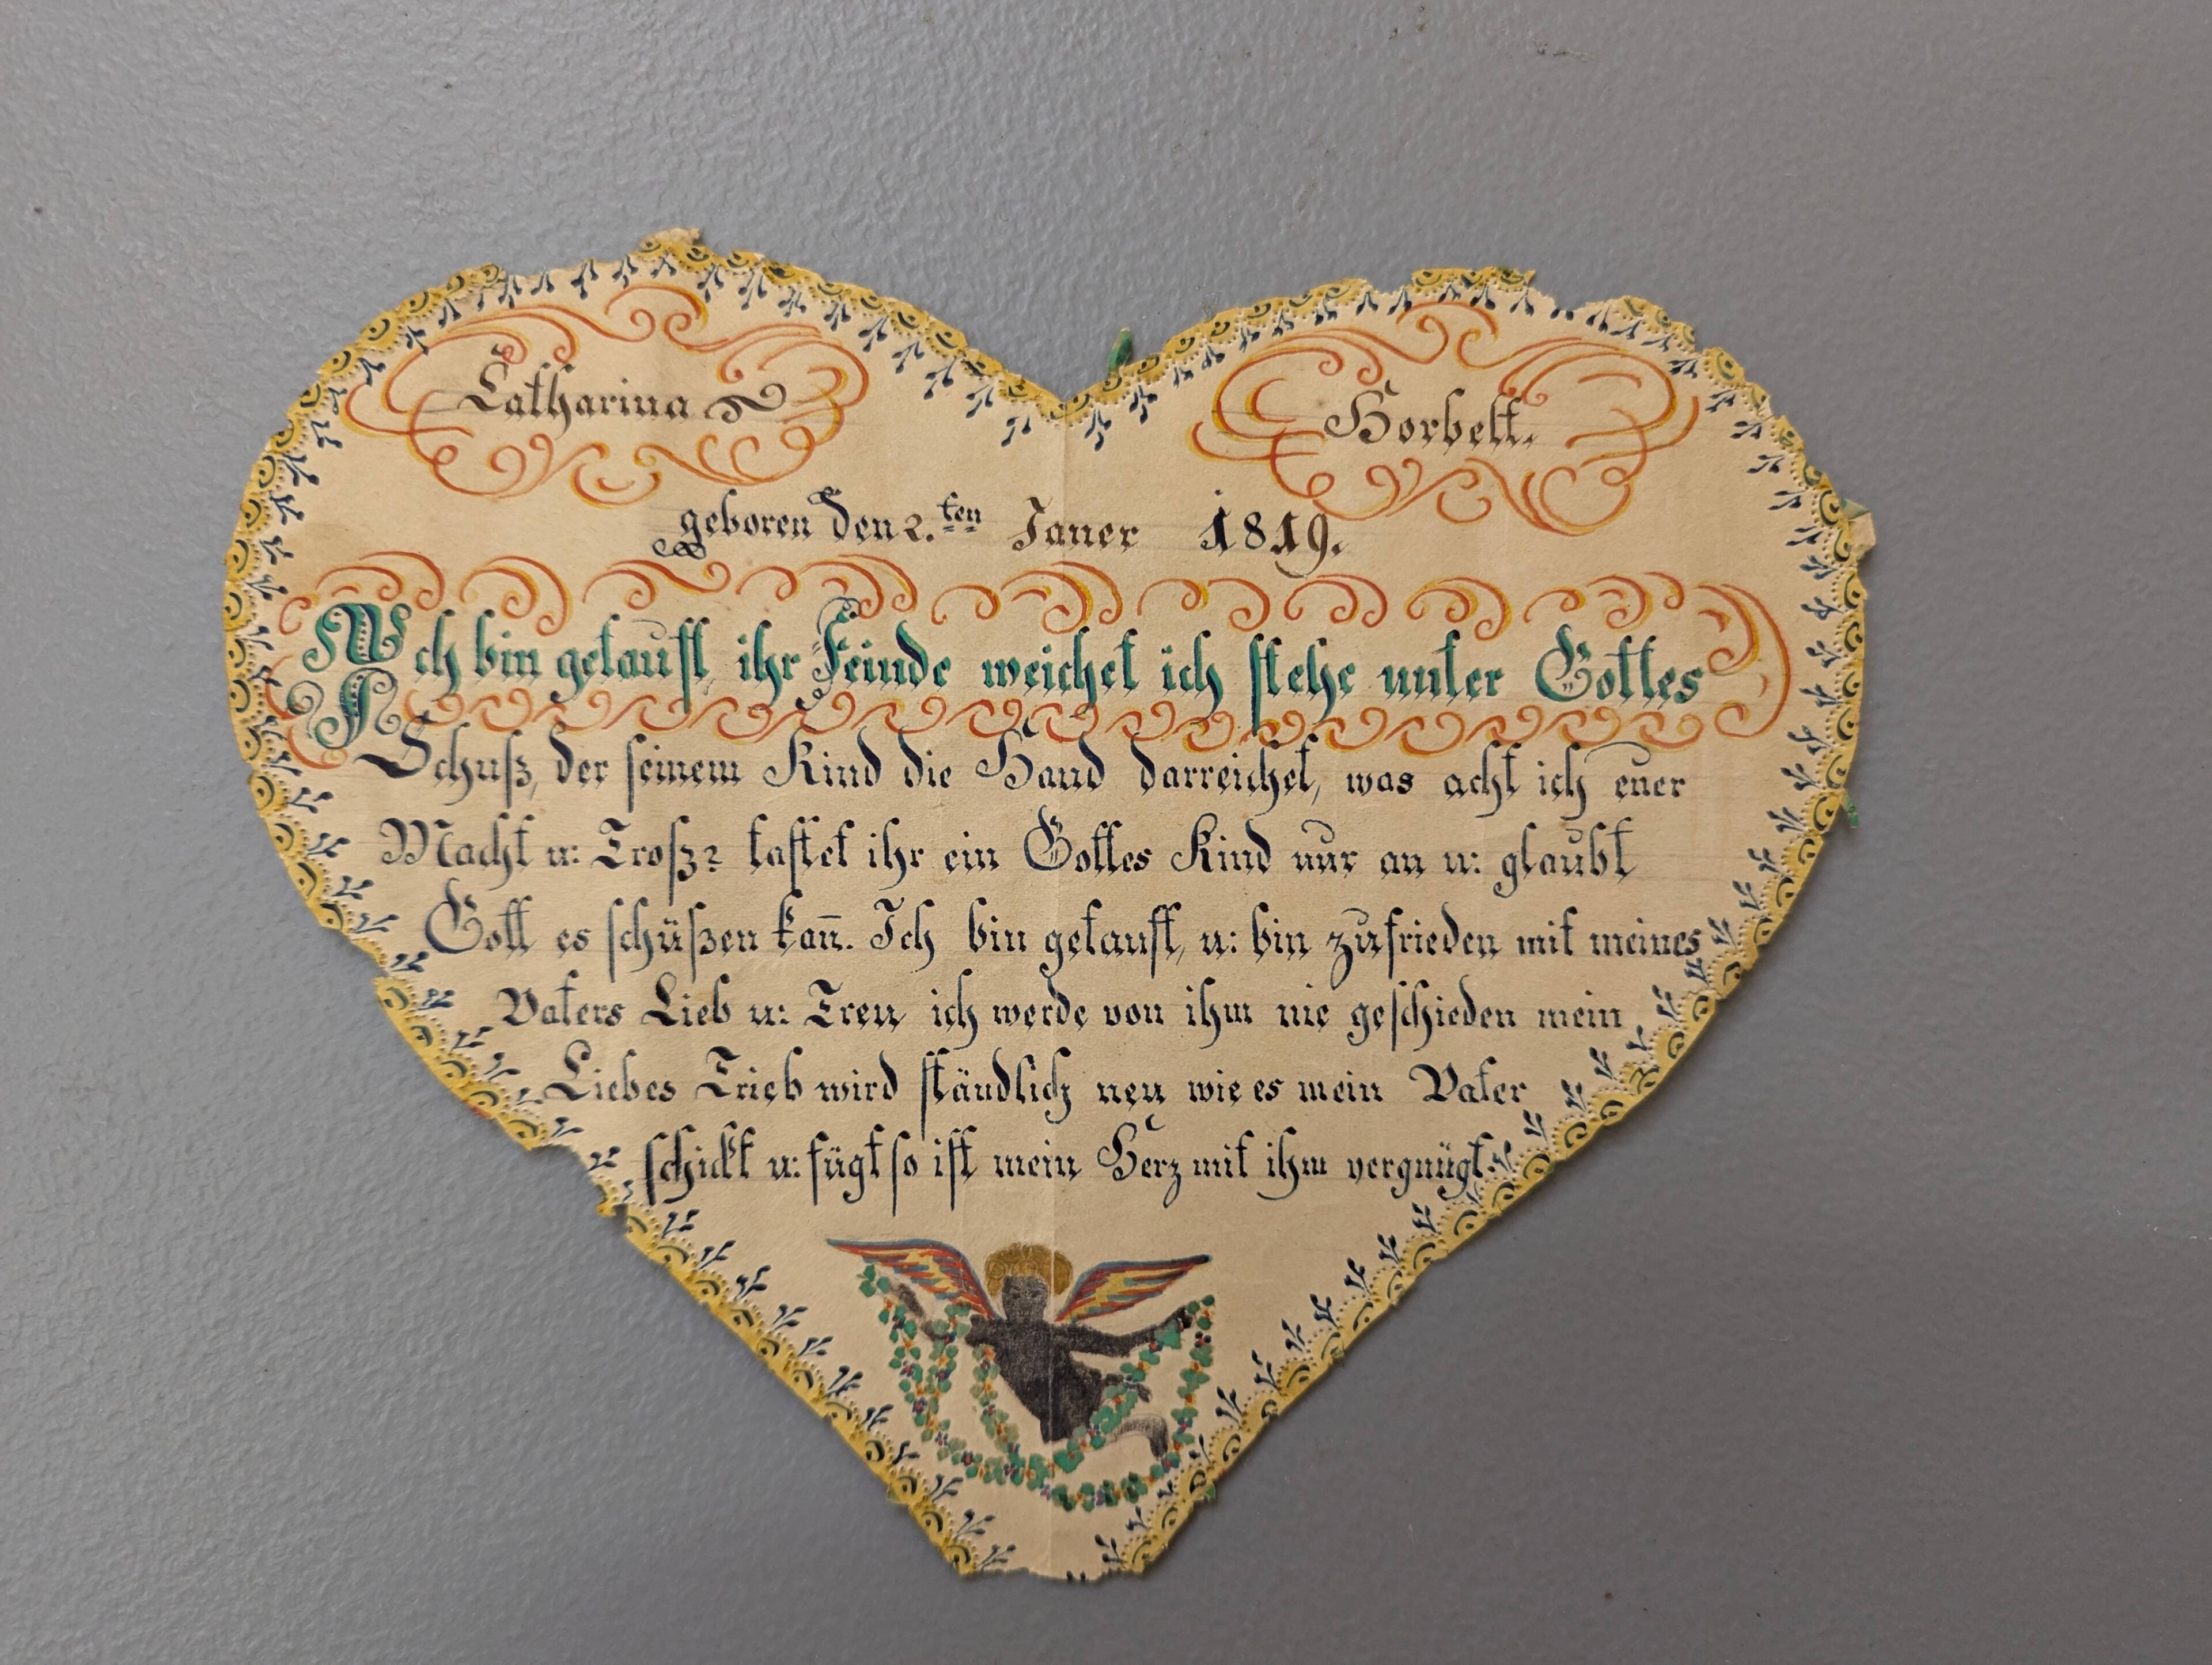 Catharina
Horbelt.
geboren den 2.ten Janer 1819.
Ich bin getauft, ihr Feinde weichet ich stehe unter Gottes
Schuß, der seinem Kind die Hand darreichet, was acht ich euer
Macht u: Troß? tastet ihr ein Gottes Kind nur an u: glaubt
Gott es schüßen kan̄. Ich bin getauft, u: bin zufrieden mit meines
Vaters Lieb u: Treu ich werde von ihm nie geschieden mein
Liebes Trieb wird ständlich neu wie es mein Vater
schickt u: fügt so ist mein Herz mit ihm vergnügt.